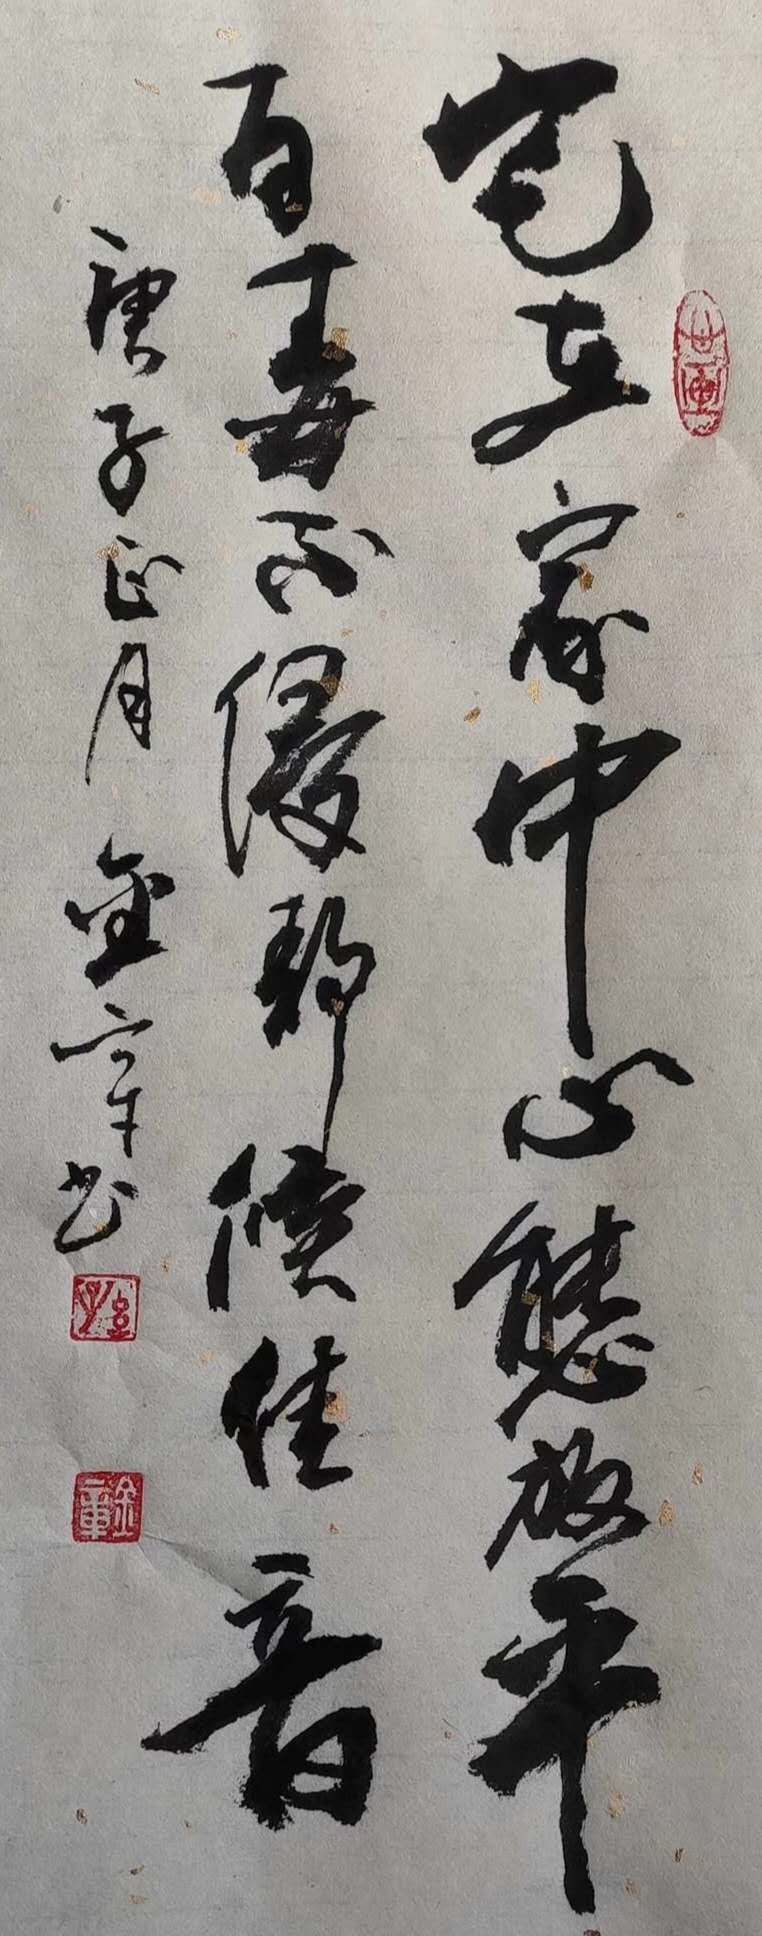 宅在家中心態放平
百毒不侵静候佳音
庚子正月金章书
金章